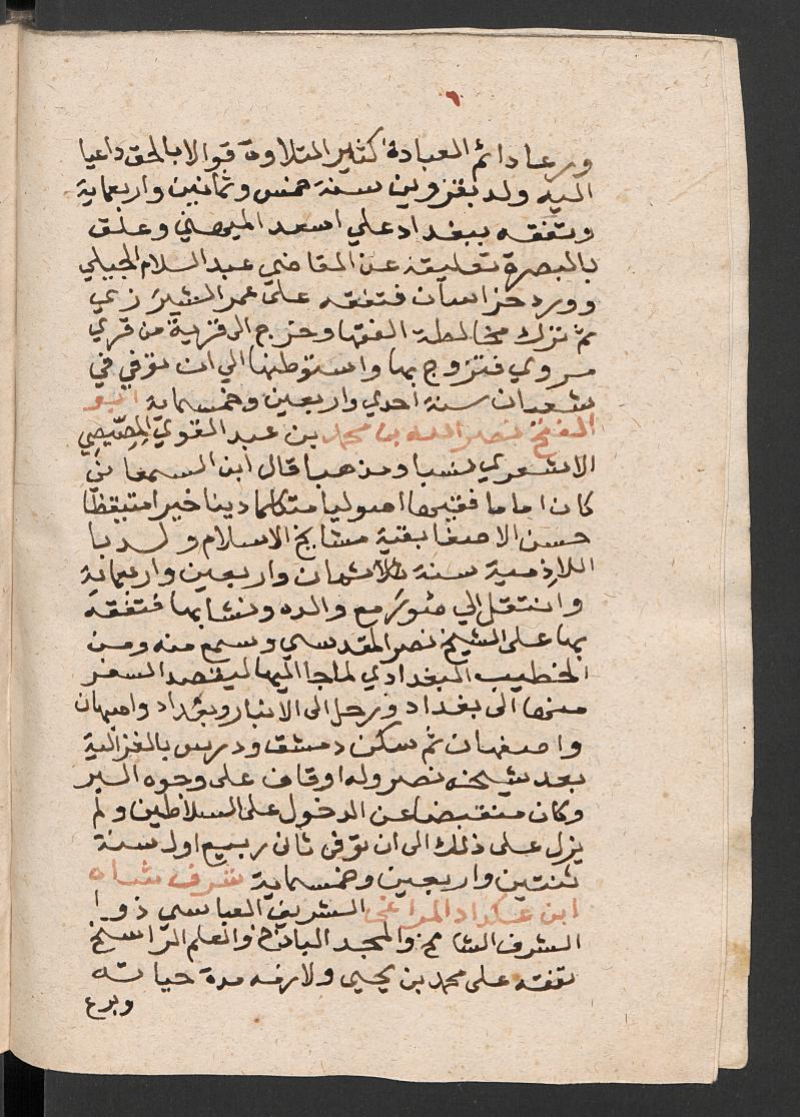 ٦
ورعا دائم العبادة كثير التلاوة قوالا بالحق داعيا
اليه ولد بقزوين سنة خمس وثمانين واربعماية
وتفقه ببغداد علي اسعد الميهني وعلق
بالبصرة تعليقة عن القاضي عبد السلام الجيلي
وورد خراسان فتفقه على عمر الشيرزي
ثم ترك مخالطة الفقها وخرج الى قرية من قري
مروي فتزوج بها واستوطنها الي ان توفي في
شعبان سنة احدي واربعين وخمسماية ابو
الفتح نصر الله بن محمد بن عبد القوي المِصّيصِي
الاشعري نسبا ومذهبا قال ابن السمعاني
كان اماما فقيها اصوليا متكلما دينا خيرا متيقظا
حسن الاصغا بقية مشايخ الاسلام ولد با
اللاذمية سنة ثمان واربعين واربعماية
وانتقل الي صور مع والده ونشا بها فتفقه
بها على الشيخ نصر المقدسي وسمع منه ومن
الخطيب البغدادي لما جا اليها ليقصد السفر
منها الى بغداد ورحل الى الانبار وبغداد واصبهان
واصفهان ثم سكن دمشق ودرس بالغزالية
بعد شيخه نصر وله اوقاف على وجوه البر
وكان منقبضا عن الدخول على السلاطين ولم
يزل على ذلك الى ان توفى ثانى ربيع اول سنة
ثنتين واربعين وخمسماية شرف شاه
ابن عكداد المراغى الشريف العباسي ذوا
الشرف الشامخ والمجد الباذخ والعلم الراسخ
تفقه على محمد بن يحيى ولازمه مدة حياته
وبرع